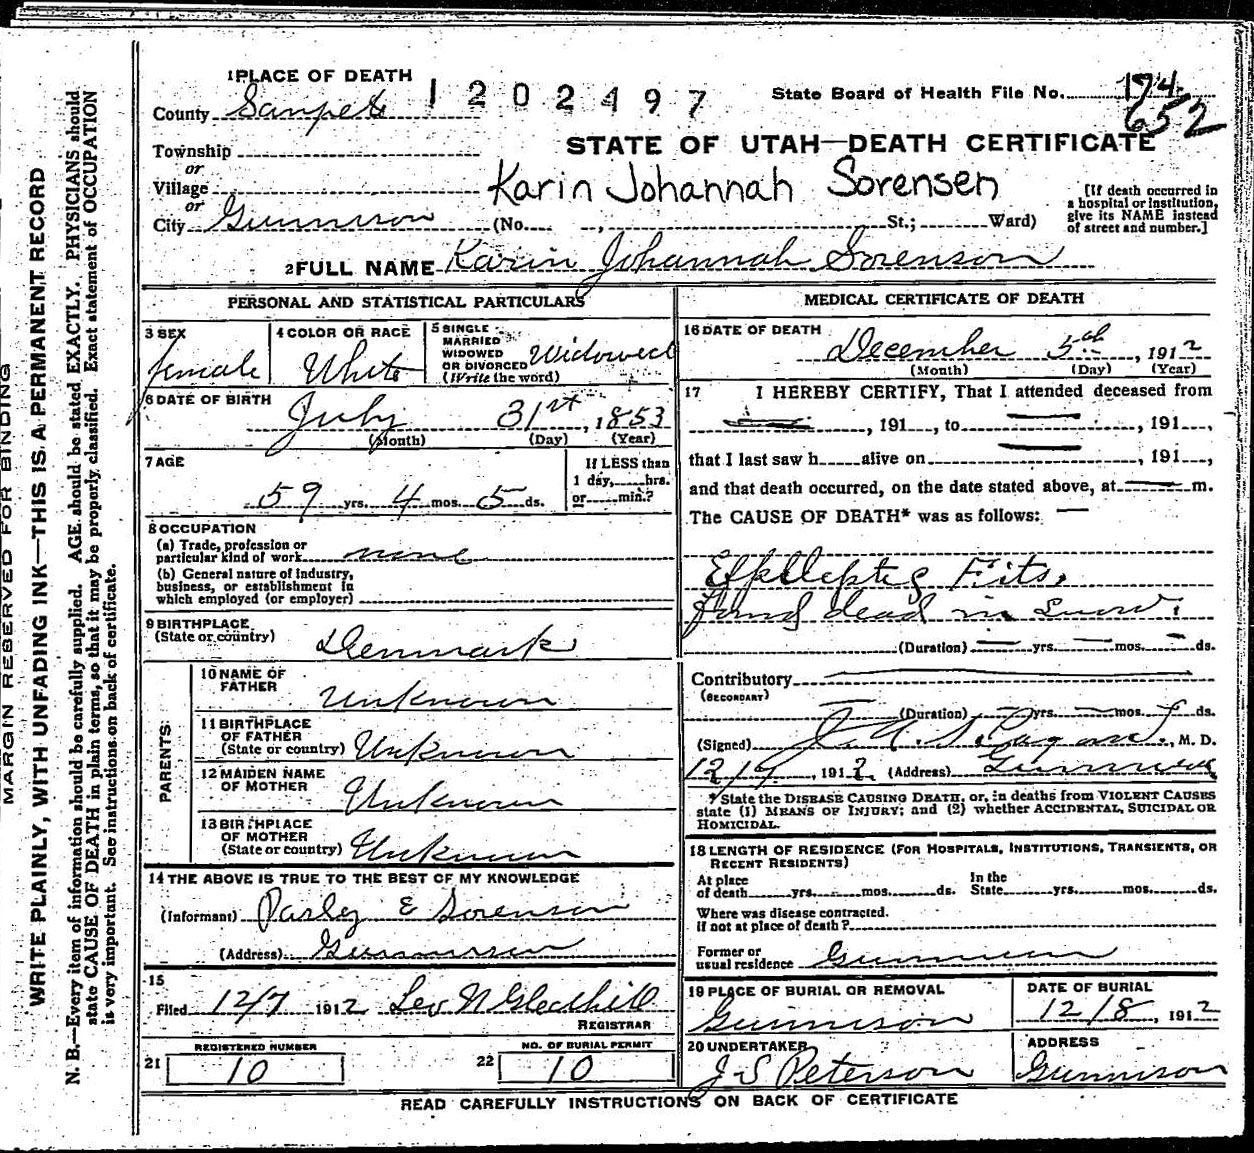 1 PLACE OF DEATH
1 2 0 2 4 9 7
State Board of Health File No. 174
652
County Sanpete
STATE OF UTAH—DEATH CERTIFICATE
Township
or
Village
or
Karin Johannah Sorensen
[If death occurred in
a hospital or institution,
give its NAME instead
of street and number.]
City Gunnison (No. , St.; Ward)
2 FULL NAME Karin Johannah Sorenson
PERSONAL AND STATISTICAL PARTICULARS
3 SEX
female
4 COLOR OR RACE
White
5 SINGLE
MARRIED
WIDOWED
OR DIVORCED
(Write the word)
Widowed
6 DATE OF BIRTH
July 31st, 1853
(Month) (Day) (Year)
7 AGE
59 yrs. 4 mos. 5 ds.
If LESS than
1 day, hrs.
or min.?
8 OCCUPATION
(a) Trade, profession or
particular kind of work none
(b) General nature of industry,
business, or establishment in
which employed (or employer)
9 BIRTHPLACE
(State or country)
Denmark
PARENTS
10 NAME OF
FATHER
Unknown
11 BIRTHPLACE
OF FATHER
(State or country) Unknown
12 MAIDEN NAME
OF MOTHER
Unknown
13 BIRTHPLACE
OF MOTHER
(State or country) Unknown
14 THE ABOVE IS TRUE TO THE BEST OF MY KNOWLEDGE
(Informant) Parley E Sorenson
(Address) Gunnison
15
Filed 12/7 1912 Leo N Gledhill
REGISTRAR
REGISTERED NUMBER
21 10
NO. OF BURIAL PERMIT
22 10
MEDICAL CERTIFICATE OF DEATH
16 DATE OF DEATH
December 5th, 1912
(Month) (Day) (Year)
17 I HEREBY CERTIFY, That I attended deceased from
, 191 , to , 191 ,
that I last saw h alive on , 191 ,
and that death occurred, on the date stated above, at m.
The CAUSE OF DEATH* was as follows:
Fits,
found dead in Snow.
(Duration) yrs. mos. ds.
Contributory
(SECONDARY)
(Duration) yrs. mos. ds.
(Signed) , M. D.
12/7, 1912 (Address) Gunnison
* State the DISEASE CAUSING DEATH, or, in deaths from VIOLENT CAUSES
state (1) MEANS OF INJURY; and (2) whether ACCIDENTAL, SUICIDAL OR
HOMICIDAL.
18 LENGTH OF RESIDENCE (FOR HOSPITALS, INSTITUTIONS, TRANSIENTS, OR
RECENT RESIDENTS)
At place
of death yrs. mos. ds.
In the
State yrs. mos. ds.
Where was disease contracted.
if not at place of death?
Former or
usual residence Gunnison
19 PLACE OF BURIAL OR REMOVAL
Gunnison
DATE OF BURIAL
12/8, 1912
20 UNDERTAKER
J S Peterson
ADDRESS
Gunnison
READ CAREFULLY INSTRUCTIONS ON BACK OF CERTIFICATE
MARGIN RESERVED FOR BINDING
WRITE PLAINLY, WITH UNFADING INK—THIS IS A PERMANENT RECORD
N. B.—Every item of information should be carefully supplied. AGE should be stated EXACTLY. PHYSICIANS should
state CAUSE OF DEATH in plain terms, so that it may be properly classified. Exact statement of OCCUPATION
is very important. See instructions on back of certificate.